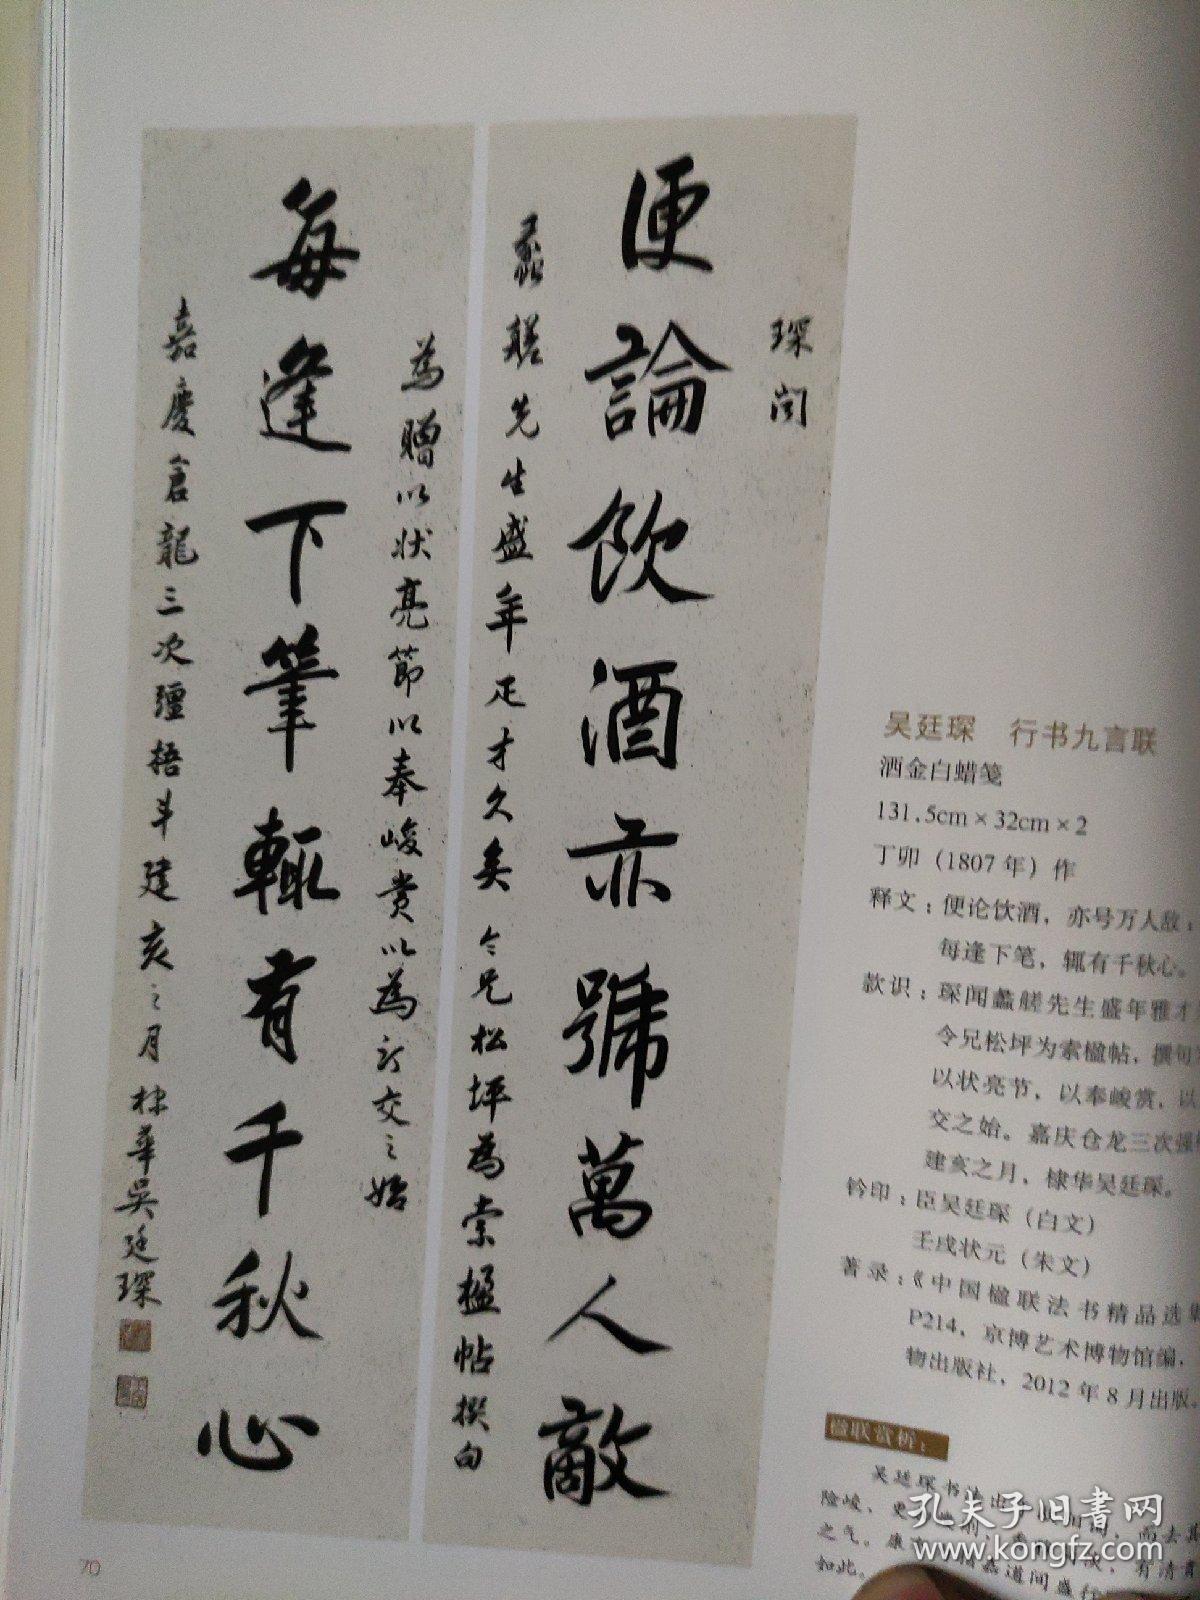 琛闻
便論飲酒亦號萬人敵
蠡艖先生盛年疋才久矣令兄松坪為索楹帖撰句
為贈以状亮節以奉峻賞以為訂交之始
每逢下筆輒有千秋心
嘉慶倉龍三次彊捂斗建亥之月棣華吳廷琛
吴廷琛 行书九言联
洒金白蜡笺
131.5cm×32cm×2
丁卯（1807年）作
释文：便论饮酒，亦号万人敌；
每逢下笔，辄有千秋心。
款识：琛闻蠡艖先生盛年雅才
令兄松坪为索楹帖，撰句
以状亮节，以奉峻赏，以
交之始。嘉庆仓龙三次强
建亥之月，棣华吴廷琛。
钤印：臣吴廷琛（白文）
壬戌状元（朱文）
著录：《中国楹联法书精品选集
P214，京博艺术博物馆编，
物出版社，2012年8月出版。
楹联赏析：
吴廷琛书法出
险峻，更
之气。康
道间盛行
如此。
70
孔夫子旧书网
www.kongfz.com